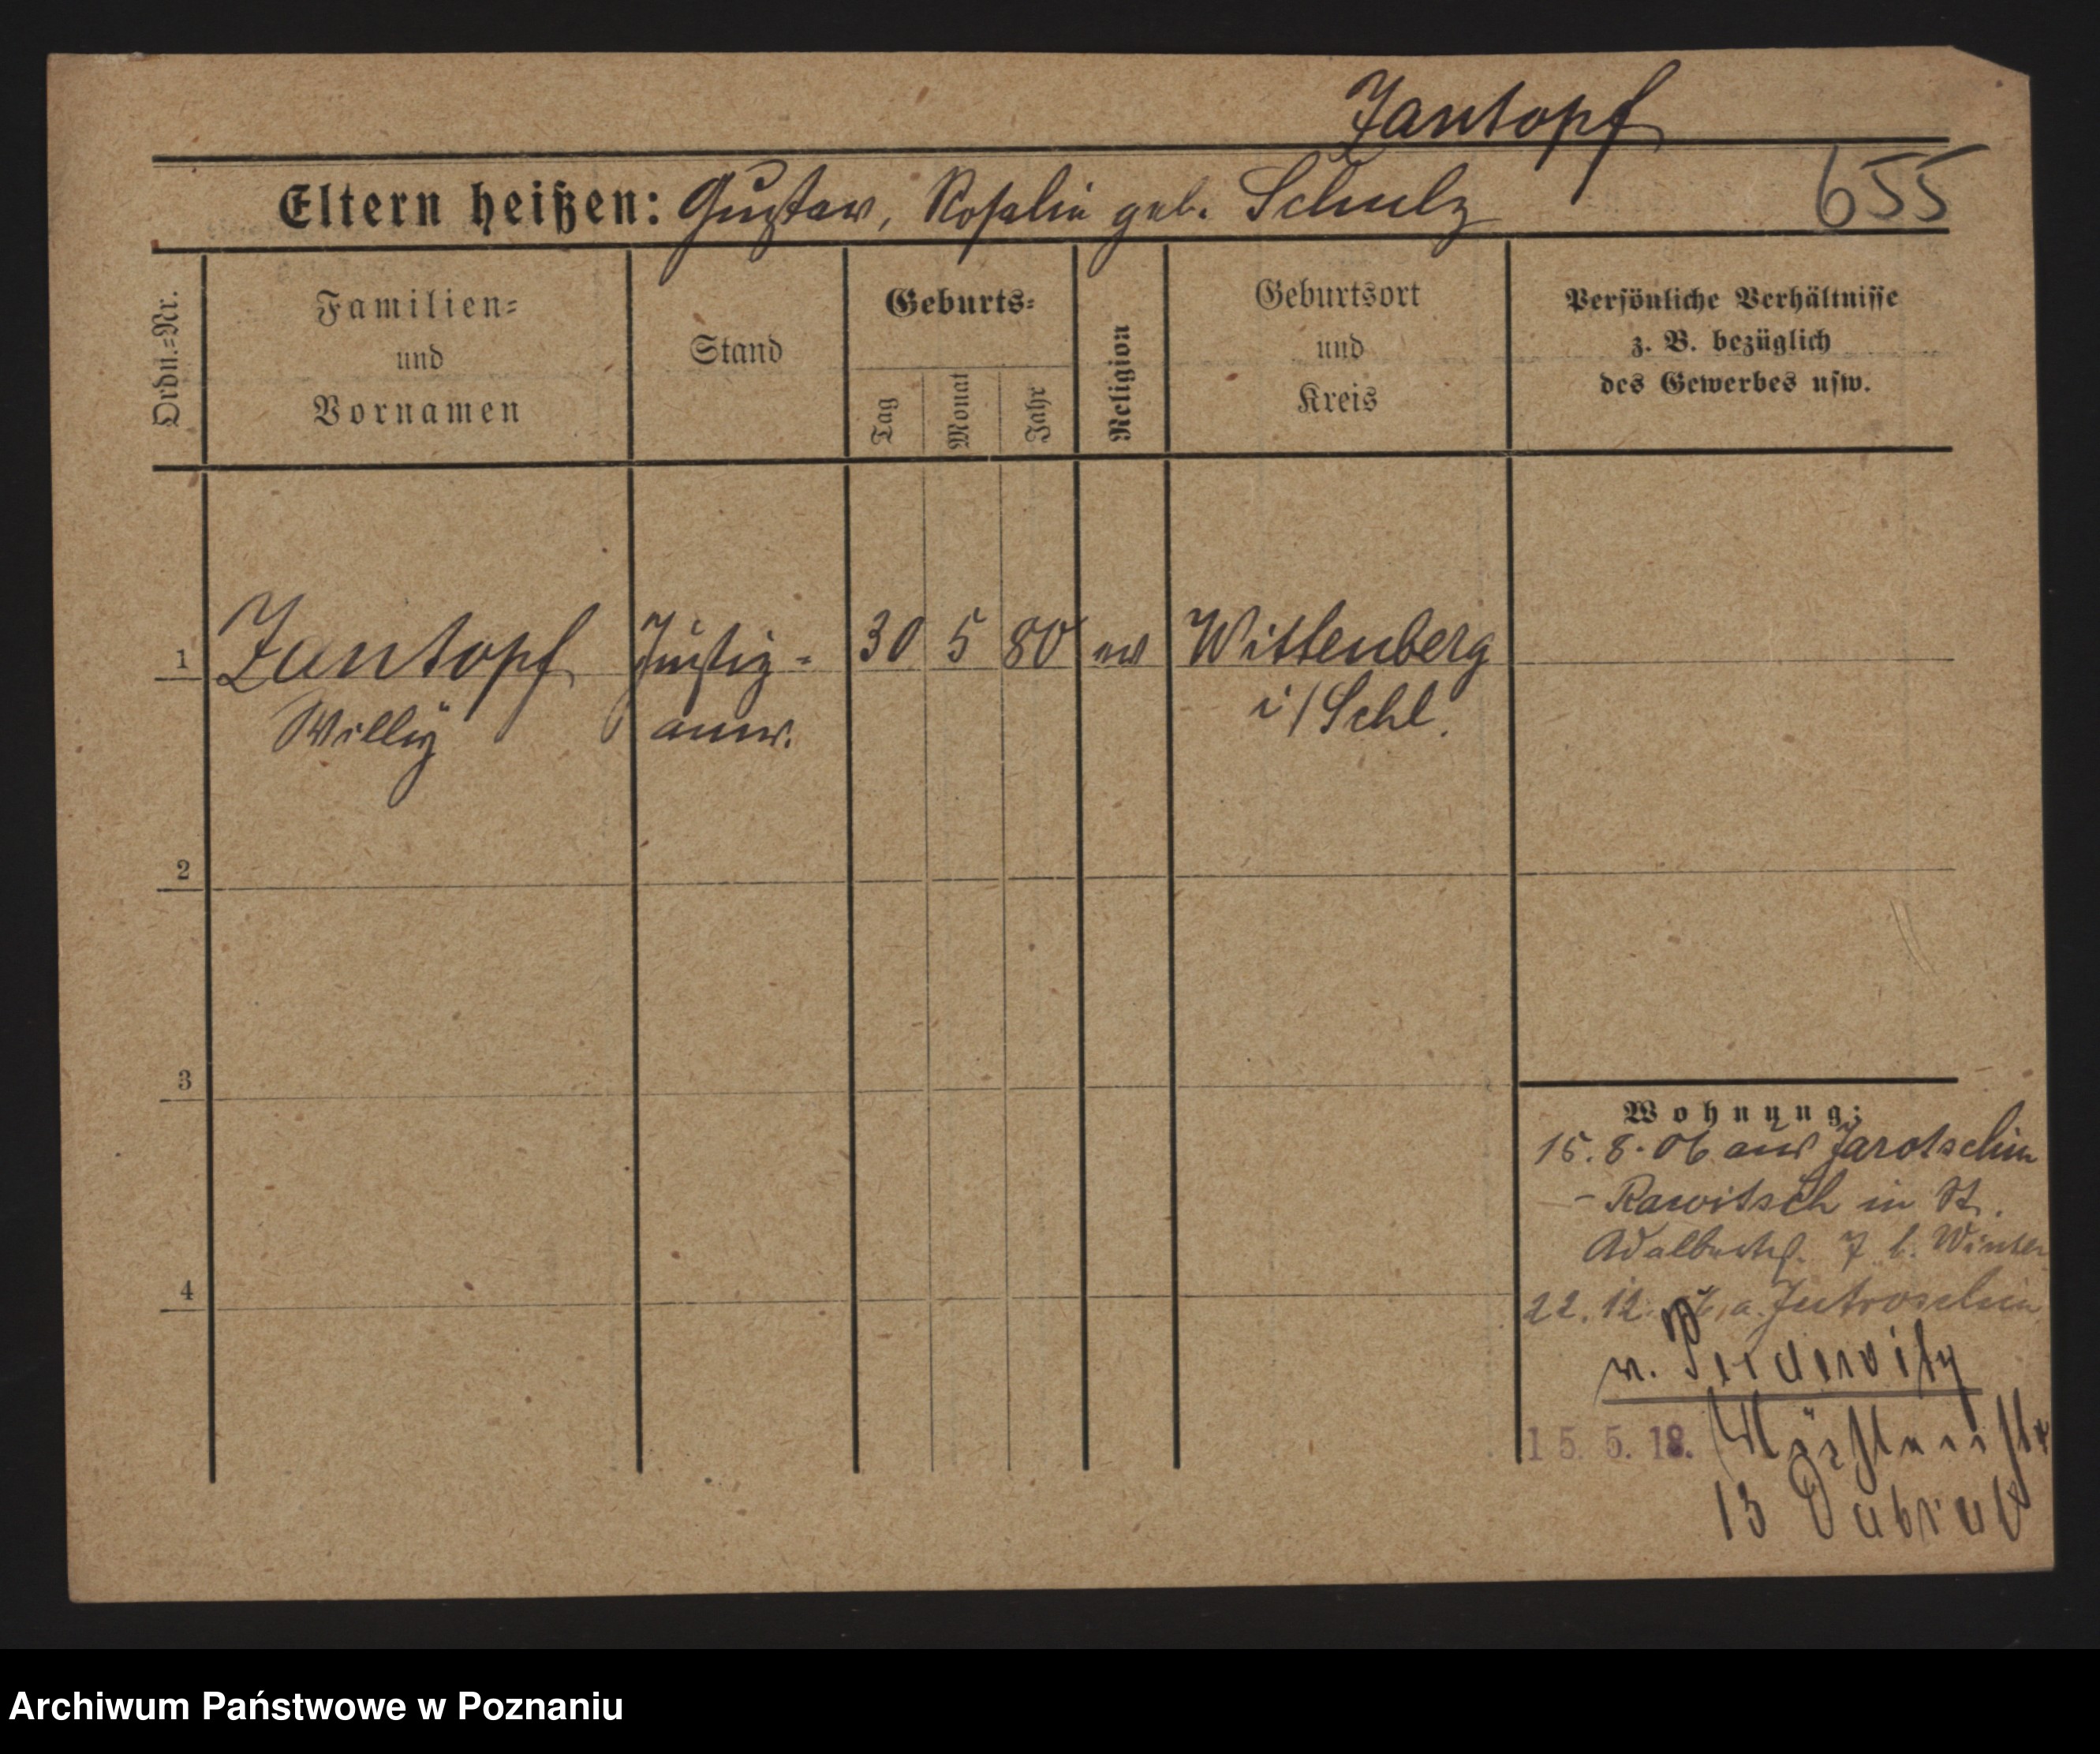 Zantopf
655
Eltern heißen: Gustav, Rosalie geb. Schulz
Ordn.-Nr.
Familien-
und
Vornamen
Stand
Geburts-
Tag
Monat
Jahr
Religion
Geburtsort
und
Kreis
Persönliche Verhältnisse
z. B. bezüglich
des Gewerbes usw.
1 Zantopf Justiz- 30 5 80 ev Wittenberg
Willy anw. i/Schl.
2
3
4
Wohnung:
15.8.06 aus Jarotschin
- Rawitsch in St.
Adalbertst. 7 b. Winter
22.12. a. Jutroschin
n.
15.5.18.
13
Archiwum Państwowe w Poznaniu